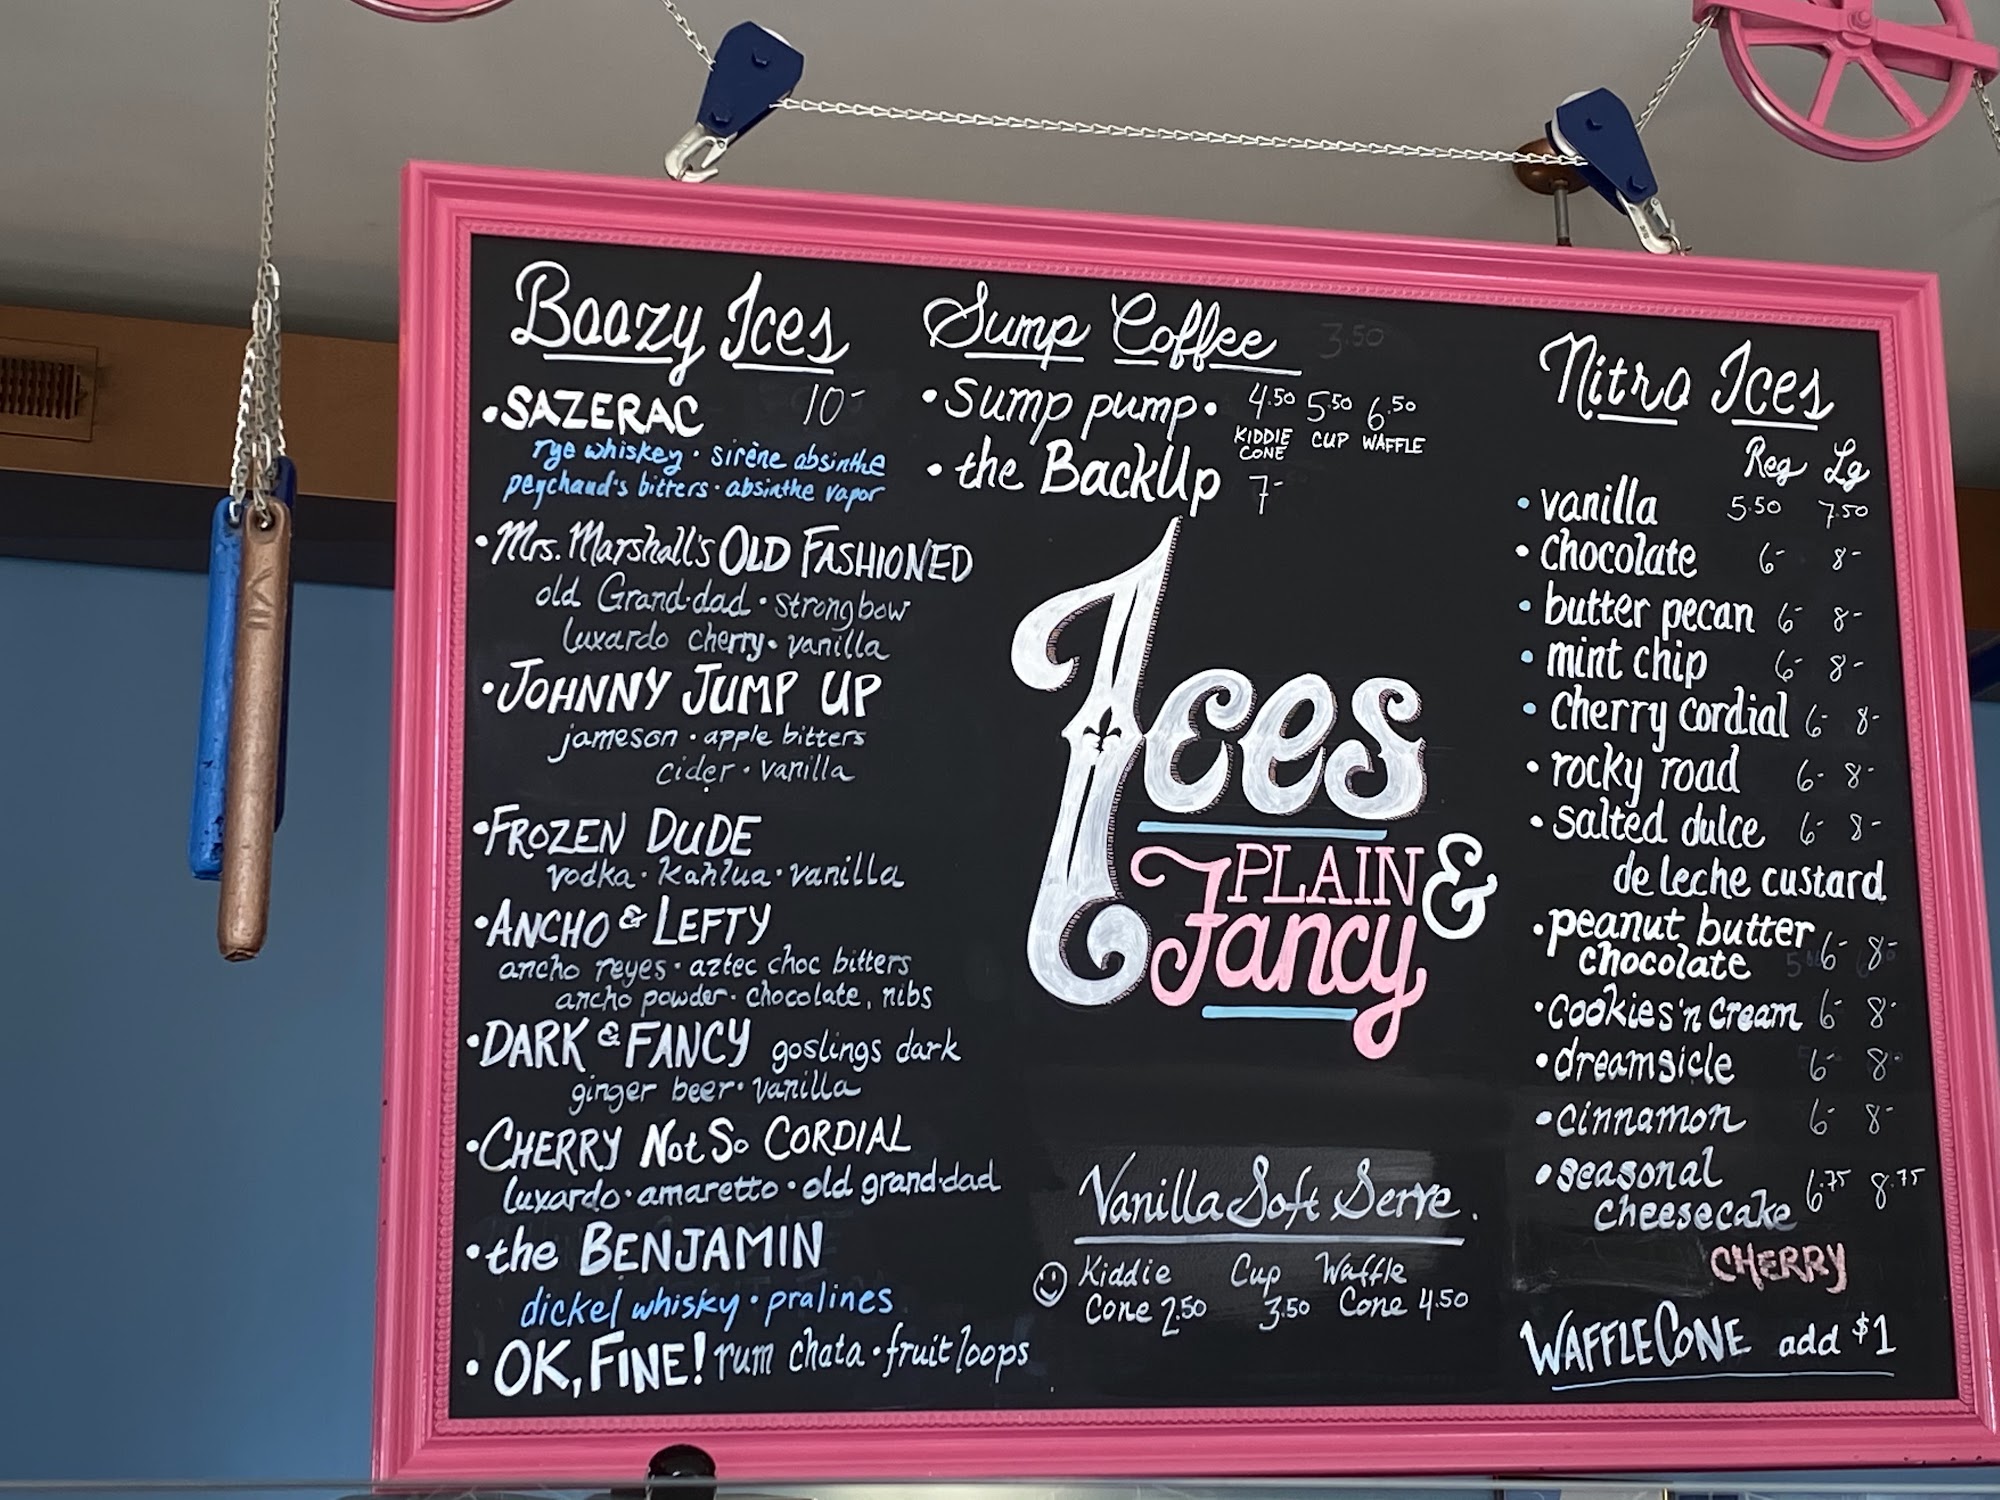 Boozy Ices
• SAZERAC 10-
rye whiskey · sirène absinthe
peychaud's bitters · absinthe vapor
• Mrs. Marshall's OLD FASHIONED
old Grand·dad · strongbow
luxardo cherry · vanilla
• JOHNNY JUMP UP
jameson · apple bitters
cider · vanilla
• FROZEN DUDE
vodka · Kahlua · vanilla
• ANCHO & LEFTY
ancho reyes · aztec choc bitters
ancho powder · chocolate, nibs
• DARK & FANCY goslings dark
ginger beer · vanilla
• CHERRY Not So CORDIAL
luxardo · amaretto · old grand·dad
• the BENJAMIN
dickel whisky · pralines
• OK, FINE! rum chata · fruit loops
Sump Coffee 3.50
• Sump pump • 4.50 5.50 6.50
KIDDIE CONE CUP WAFFLE
• the BackUp 7-
Ices
PLAIN &
Fancy
Vanilla Soft Serve.
Kiddie Cup Waffle
Cone 2.50 3.50 Cone 4.50
Nitro Ices
Reg Lg
• vanilla 5.50 7.50
• chocolate 6- 8-
• butter pecan 6- 8-
• mint chip 6- 8-
• cherry cordial 6- 8-
• rocky road 6- 8-
• salted dulce 6- 8-
de leche custard
• peanut butter
chocolate 6- 8-
• cookies 'n cream 6- 8-
• dreamsicle 6- 8-
• cinnamon 6- 8-
• seasonal
cheesecake 6.75 8.75
CHERRY
WAFFLE CONE add $1
VII